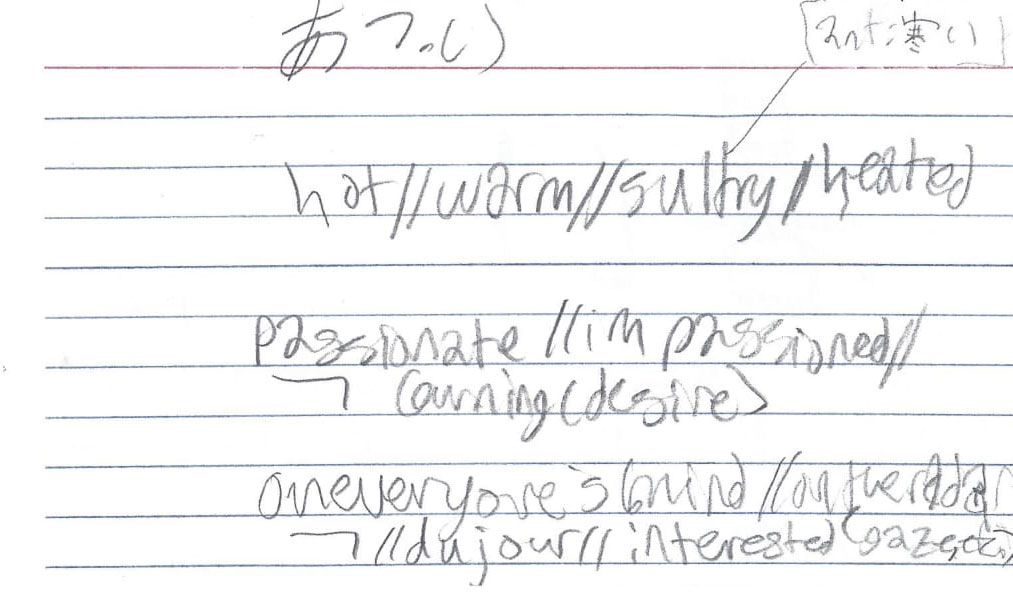 あつ.い [ant:寒い]
hot//warm//sultry//heated
passionate//impassioned//
→ burning(desire)
on everyone's mind//on the radar
→//du jour//interested(gaze,etc.)